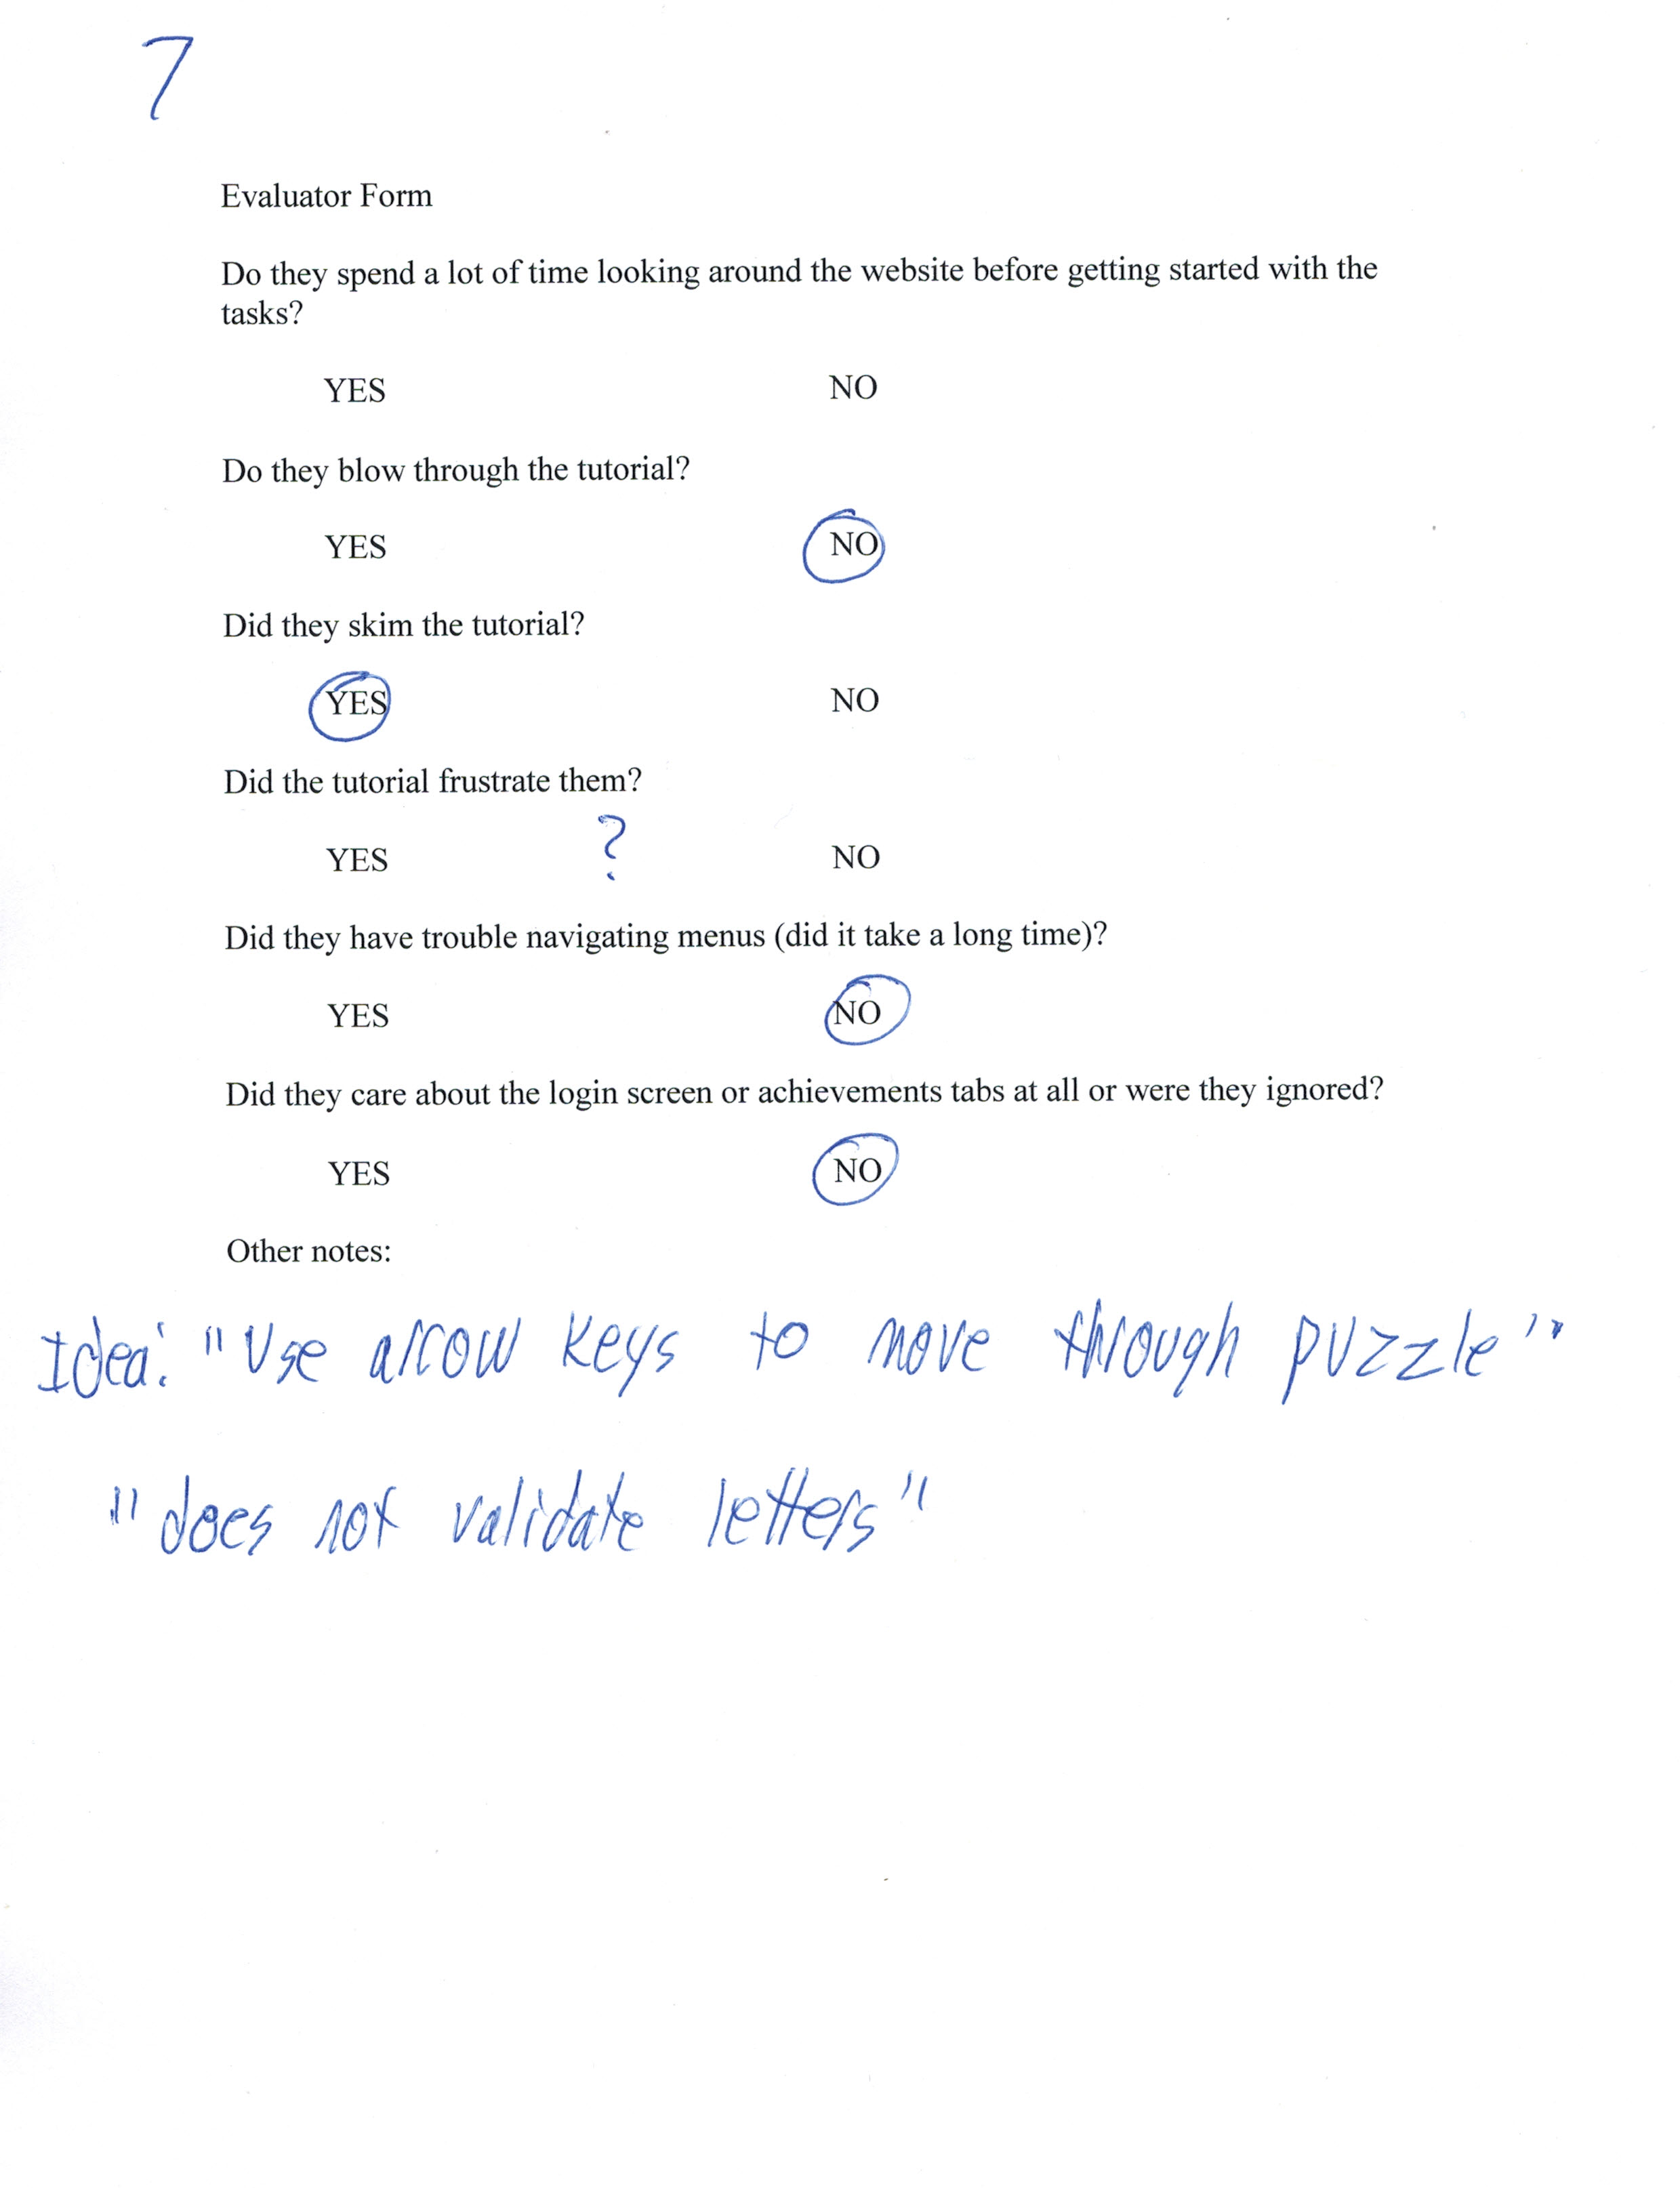 7
Evaluator Form
Do they spend a lot of time looking around the website before getting started with the
tasks?
YES NO
Do they blow through the tutorial?
YES NO
Did they skim the tutorial?
YES NO
Did the tutorial frustrate them?
YES ? NO
Did they have trouble navigating menus (did it take a long time)?
YES NO
Did they care about the login screen or achievements tabs at all or were they ignored?
YES NO
Other notes:
Idea: "Use arrow keys to move through puzzle"
"does not validate letters"